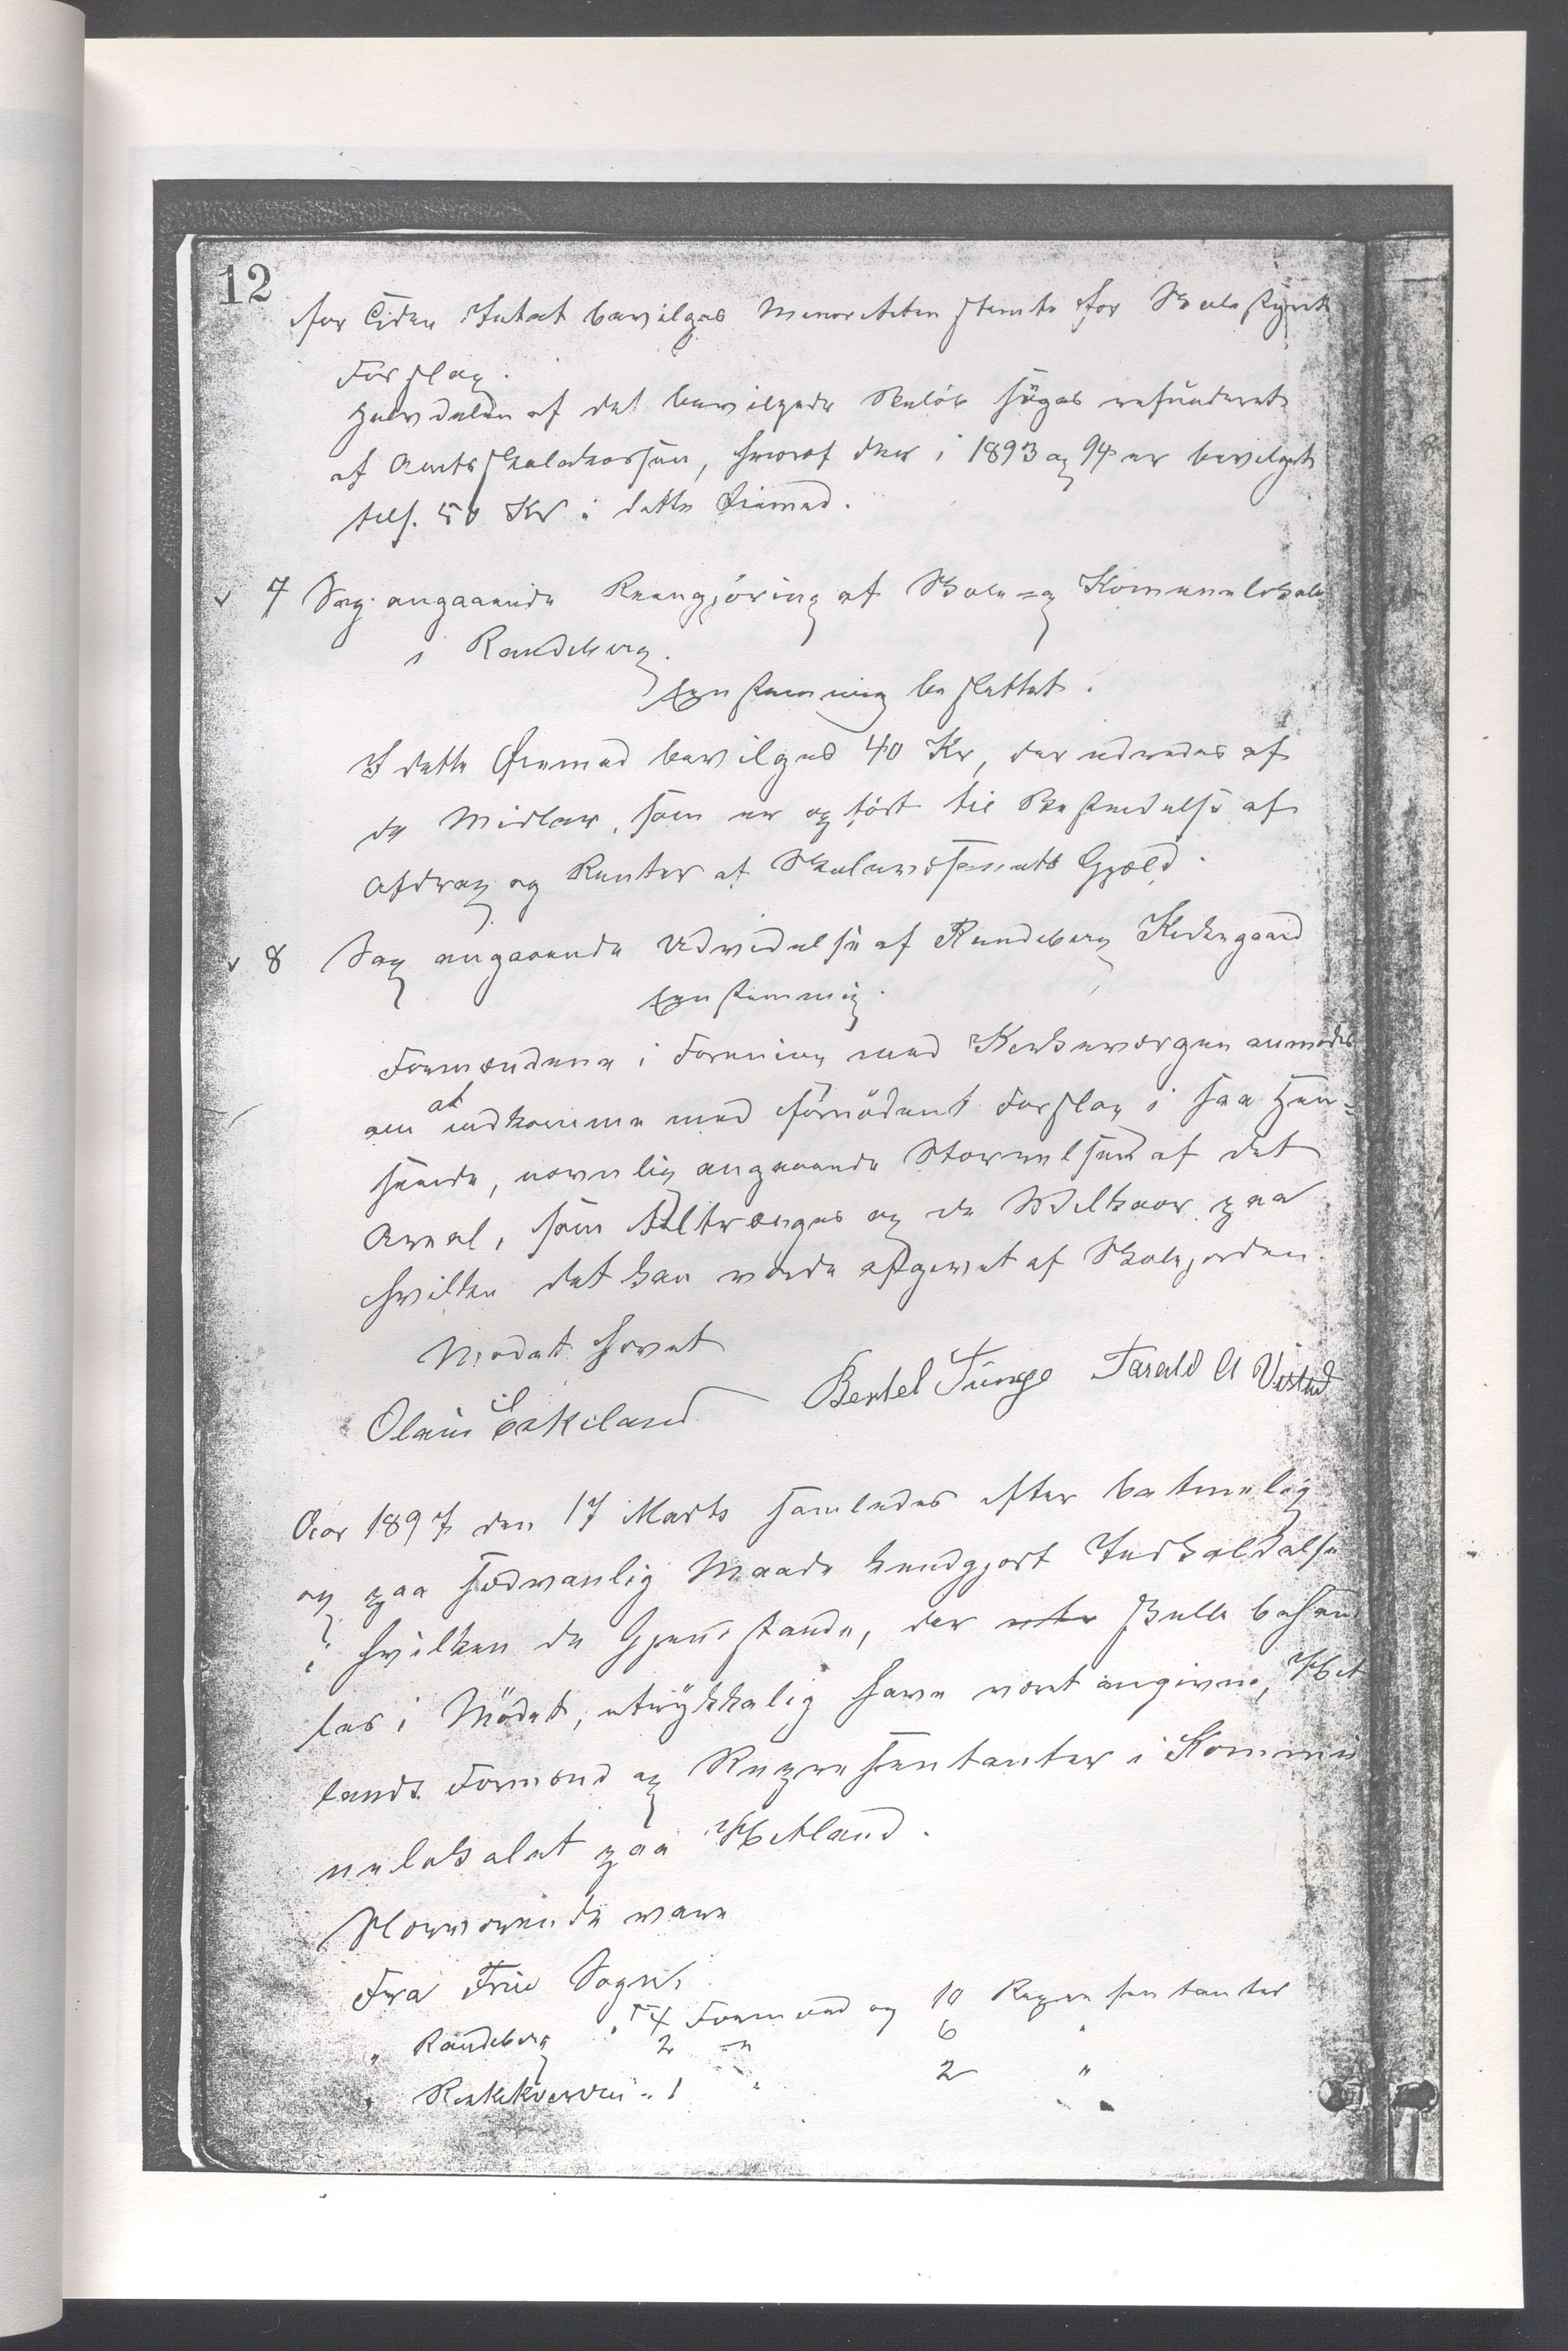 12
for Tiden Intet bevilges Minoriteten stemte for Skolestyrets
Forslag.
Halvdelen af det bevilgede Beløb søges refunderet
af Amtsskolekassen, hvoraf der i 1893 og 94 er bevilget
tils. 50 Kr i dette Øiemed.
7 Sag angaaende Reengjøring af Skole- og Kommunelokale
i Randeberg.
Eenstemmig besluttet.
I dette Øiemed bevilges 40 Kr, der udredes af
de Midler, som er opført til Bestridelse af
Afdrag og Renter af Skolevæsenets Gjæld.
8 Sag angaaende Udvidelse af Randeberg Kirkegaard
Eenstemmig.
Formændene i Forening med Kirkeværgen anmodes
om at indkomme med fornødent Forslag i saa Hen-
seende, navnlig angaaende Størrelsen af det
Areal, som tiltrænges og de Vilkaar paa
hvilke det kan vorde afgivet af Skolejorden.
Mødet hævet
Olaus Eskeland Bertel Tunge Tarald A Vistad
Aar 1897 den 17 Marts samledes efter betimelig
og paa sædvanlig Maade kundgjort Indkaldelse
i hvilken de Gjenstande, der skulle behand
les i Mødet, utrykkelig have været angivne, Het
lands Formænd og Repræsentanter i Kommu
nelokalet paa Hetland.
Nærværende vare
Fra Frue Sogn, 4 Formænd og 10 Repræsentanter
" Randeberg 2 " 6 "
" 1 " 2 "